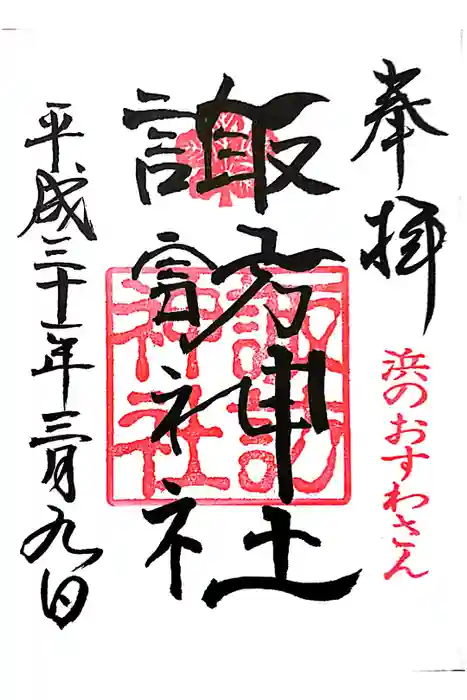 奉拝
浜のおすわさん
諏訪神社
諏訪神社
平成三十一年三月九日